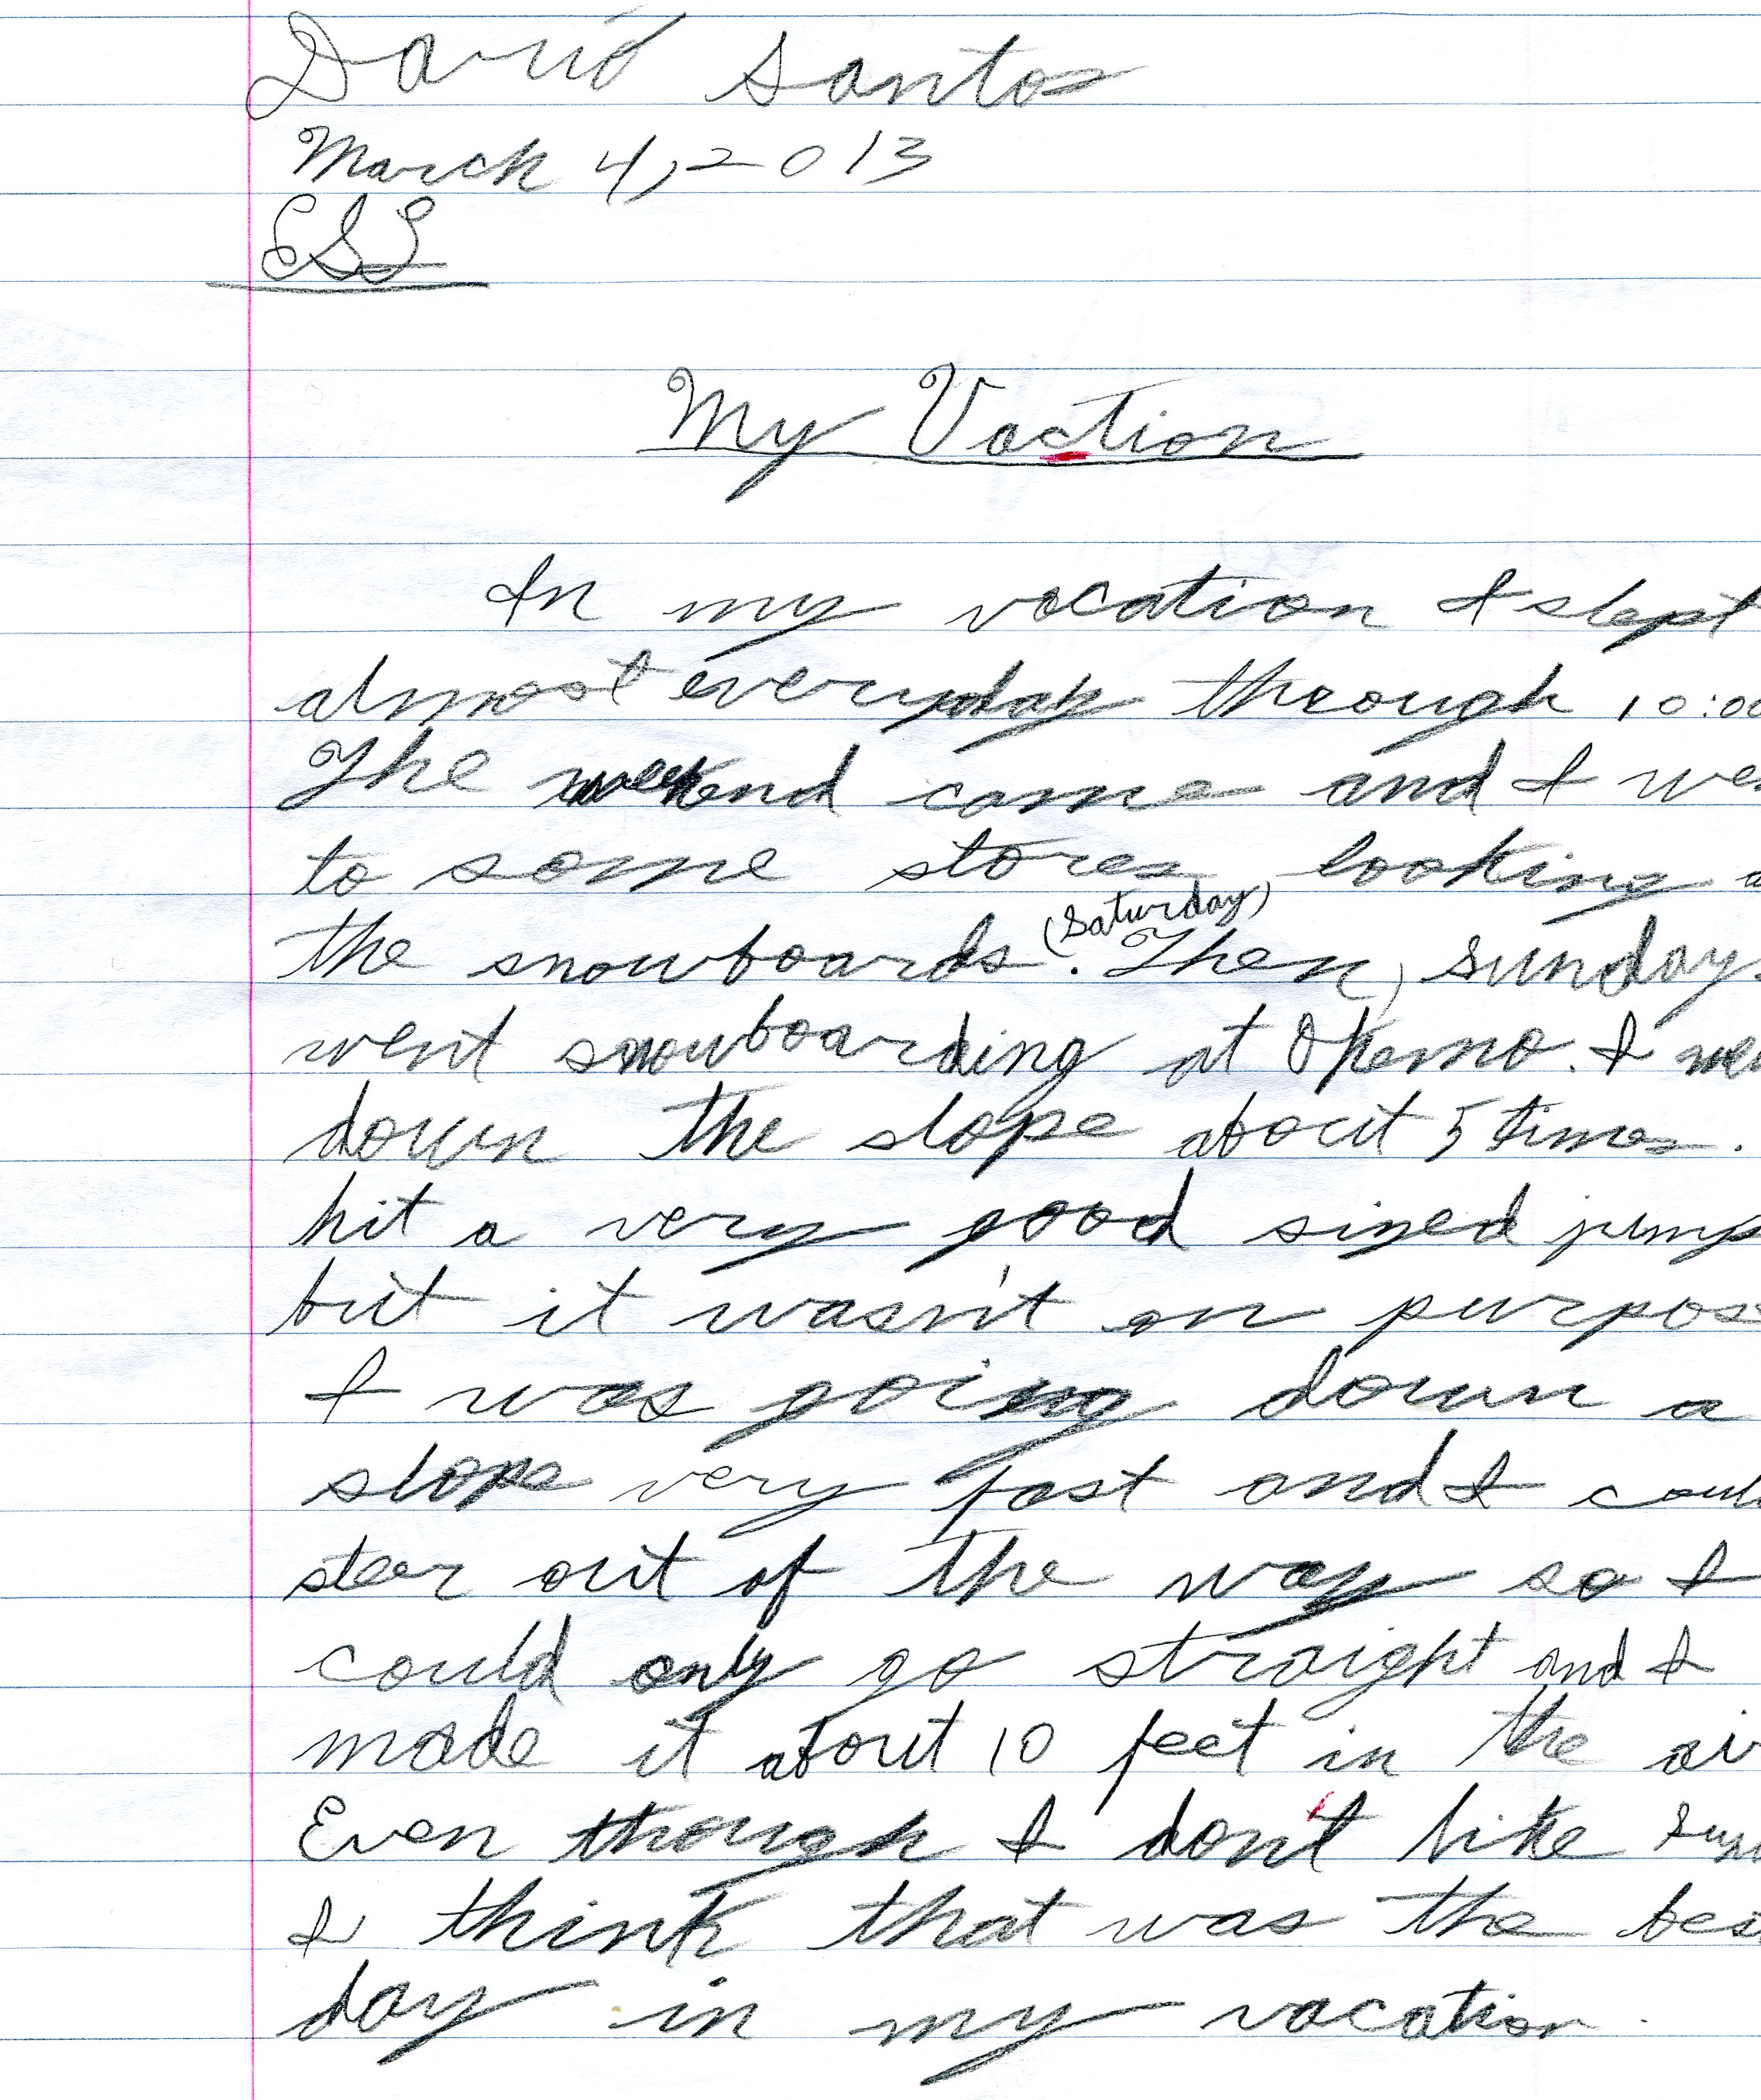 David Santos
March 4, 2013
ESL
My Vaction
In my vacation I slept
almost everyday through 10:00
The weekend came and I we
to some stores looking a
the snowboards (Saturday). Then, Sunday
went snowboarding at Okemo. I we
down the slope about 5 times.
hit a very good sized jump
but it wasn't on purpos
I was going down a
slope very fast and I coul
steer out of the way so I
could only go straight and I
made it about 10 feet in the air
Even though I don't like
I think that was the bes
day in my vacation.